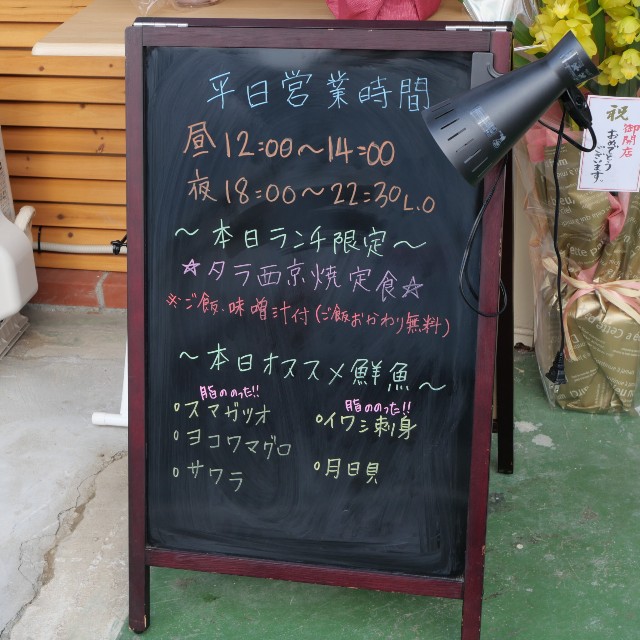 平日営業時間
昼12:00〜14:00
夜18:00〜22:30L.O
〜本日ランチ限定〜
☆タラ西京焼定食☆
※ご飯・味噌汁付(ご飯おかわり無料)
〜本日オススメ鮮魚〜
脂ののった!!
○スマガツオ
○ヨコワマグロ
○サワラ
脂ののった!!
○イワシ刺身
○月日貝
祝
御開店
おめでとう
ございます。